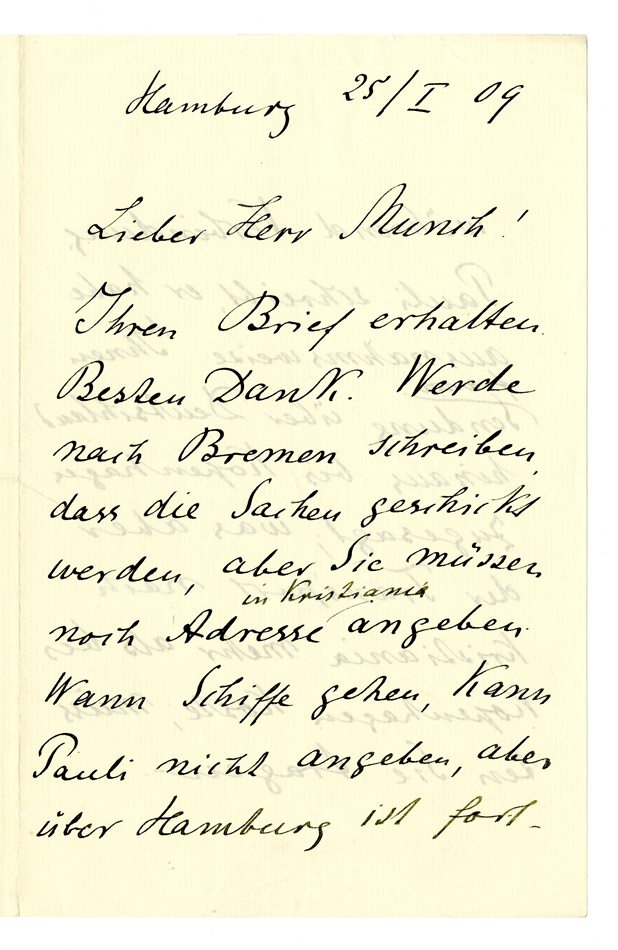 Hamburg 25/I 09
Lieber Herr Munch!
Ihren Brief erhalten.
Besten Dank. Werde
nach Bremen schreiben,
dass die Sachen geschickt
werden, aber Sie müssen
in Kristiania
noch Adresse angeben.
Wann Schiffe gehen, kann
Pauli nicht angeben, aber
über Hamburg ist fort-